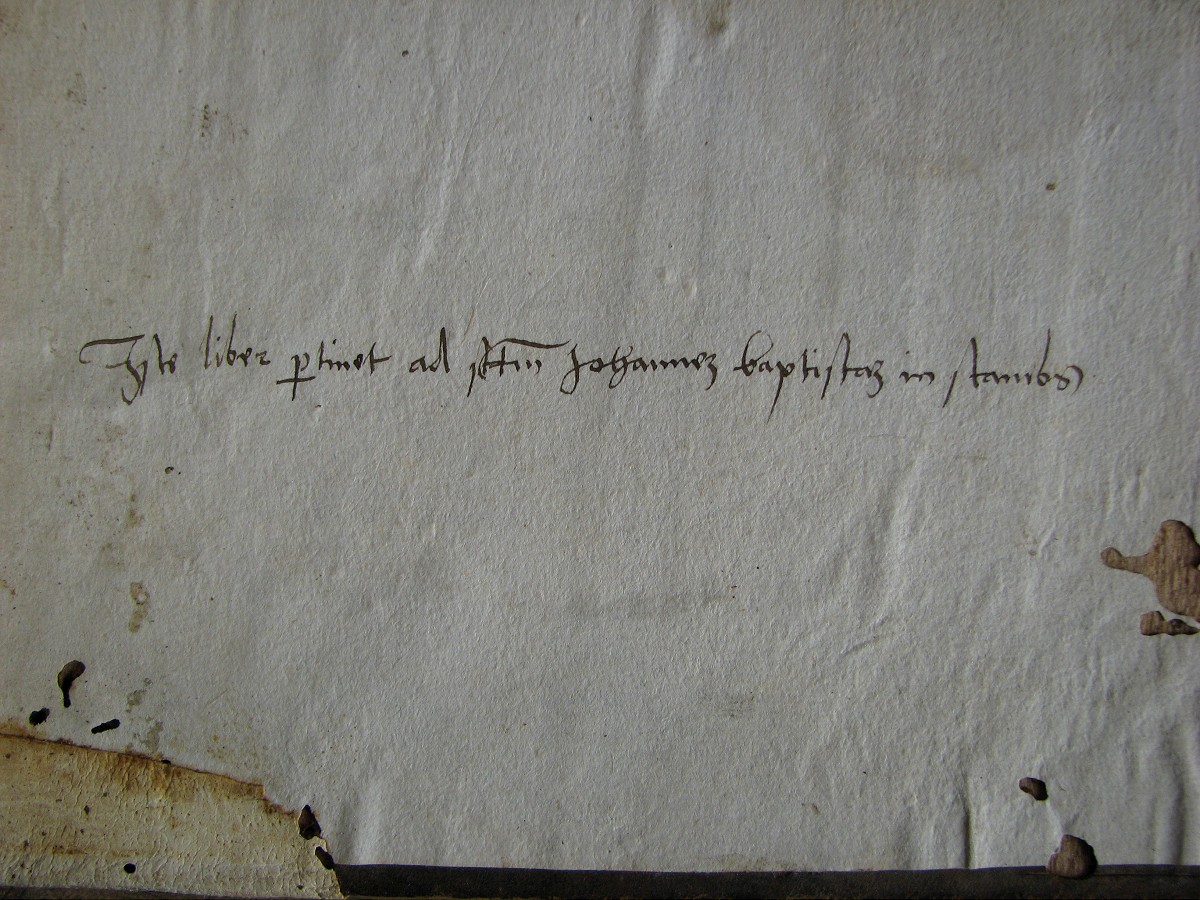 Iste liber ꝑtinet ad sctm̄ Johannez baptistaz in stambs